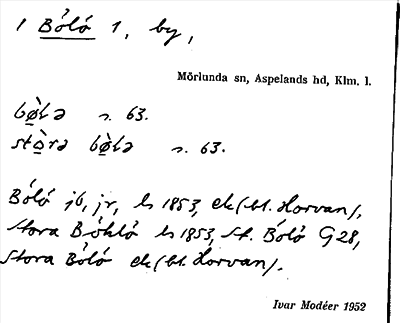 1 Bölö 1, by,
Mörlunda sn, Aspelands hd, Klm. l.
bø̀lə n. 63.
stò̱rə bø̀lə n. 63.
Bölö jb, jr, ls 1853, ek (bl. Horvan),
Stora Böhlö ls 1853, St. Bölö G28,
Stora Bölö ek (bl. Horvan).
Ivar Modéer 1952